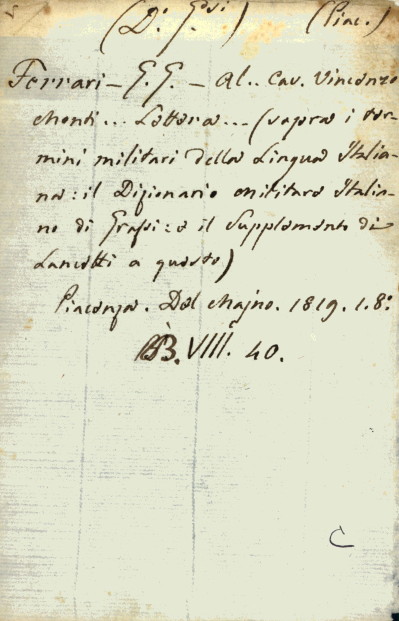 (D.i G.si) (Piac.)
Ferrari – G. G. – Al.. Cav. Vincenzo
Monti... Lettera... (sopra i ter-
mini militari della Lingua Italia-
na: il Dizionario militare Italia-
no di Grassi: e il Supplemento di
Lancetti a questo)
Piacenza. Del Majno. 1819. 1. 8.o
BB. VIII. 40.
C